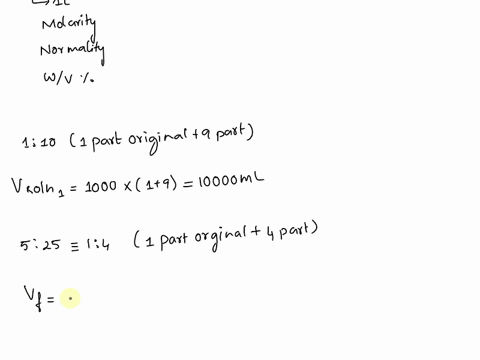 ↳ 1L
Molarity
Normality
W/V %
1:10 (1 part original + 9 part)
Vsoln1 = 1000 × (1+9) = 10000 mL
5:25 ≡ 1:4 (1 part orginal + 4 part)
Vf =